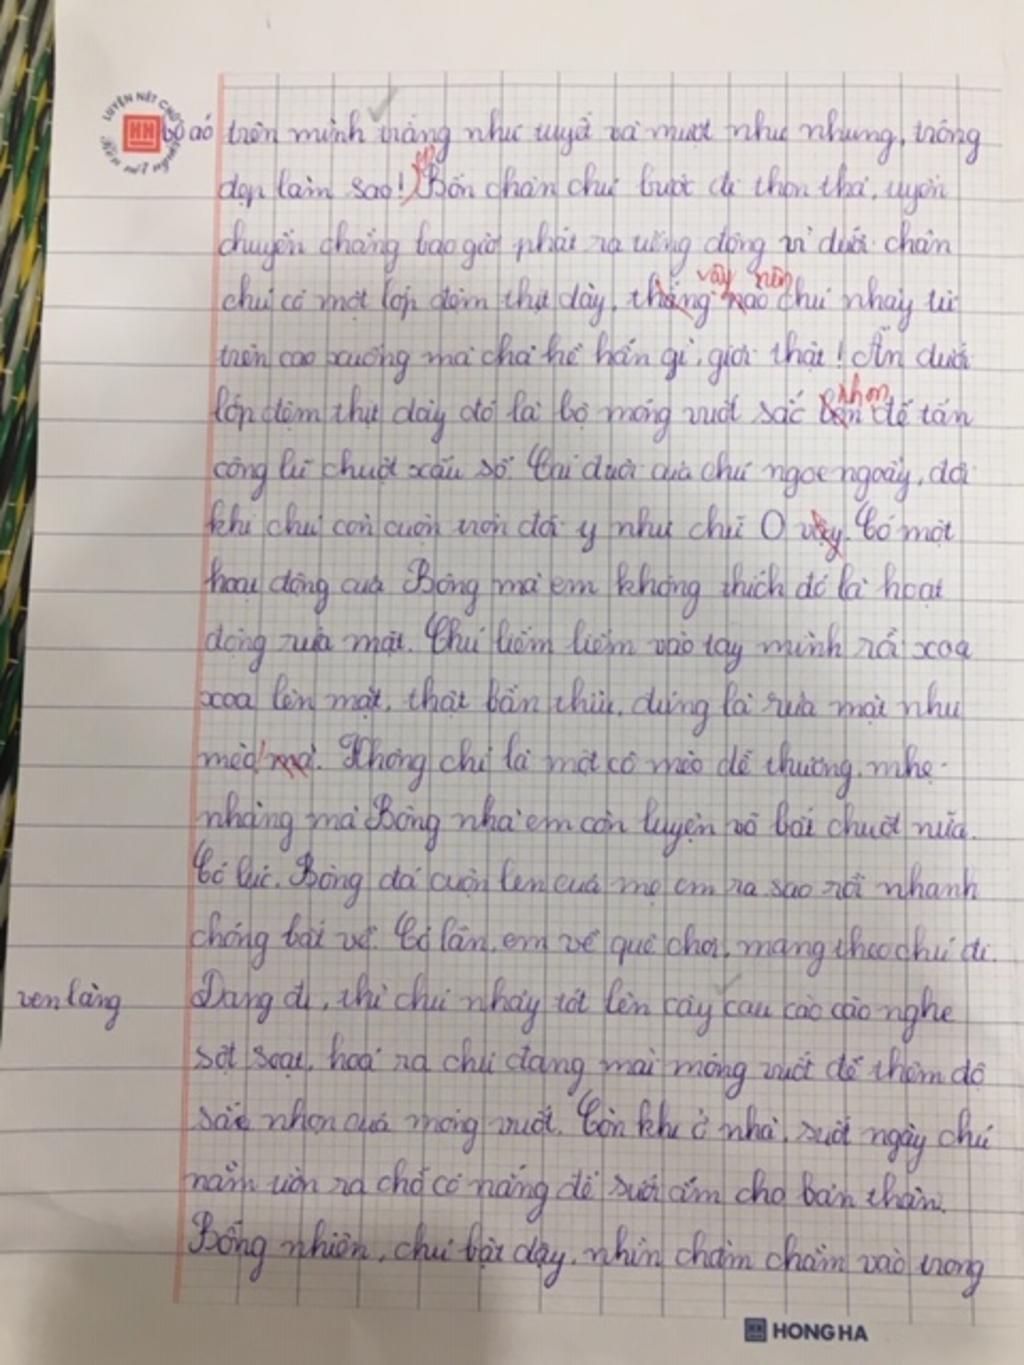 LUYỆN NÉT CHỮ
HH
Rèn nết người
bộ áo trên mình trắng như tuyết và mượt như nhung, trông
đẹp làm sao! Bốn chân chú bước đi thon thả, uyển
chuyển chẳng bao giờ phát ra tiếng động vì dưới chân
chú có một lớp đệm thịt dày, thảng nào chú nhảy từ
vậy nên
trên cao xuống mà chả hề hấn gì, giỏi thật! Ẩn dưới
lớp đệm thịt dày đó là bộ móng vuốt sắc để tấn
nhọn
công lũ chuột xấu số. Cái đuôi của chú ngoe ngoảy, đôi
khi chú còn cuộn tròn đuôi y như chữ O vậy. Có một
hoạt động của Bông mà em không thích đó là hoạt
động rửa mặt. Chú liếm liếm vào tay mình rồi xoa
xoa lên mặt, thật bẩn thỉu, đúng là rửa mặt như
mèo mà. Không chỉ là một cô mèo dễ thương, nhẹ
nhàng mà Bông nhà em còn luyện võ bắt chuột nữa.
Có lúc, Bông đá cuộn len của mẹ em ra sao rồi nhanh
chóng bắt về. Có lần, em về quê chơi, mang theo chú đi.
ven làng Đang đi, thì chú nhảy tót lên cây cau cào cào nghe
sột soạt, hoá ra chú đang mài móng vuốt để thêm độ
sắc nhọn của móng vuốt. Còn khi ở nhà, suốt ngày chú
nằm ườn ra chỗ có nắng để sưởi ấm cho bản thân.
Bỗng nhiên, chú bật dậy, nhìn chằm chằm vào trong
HH HONG HA